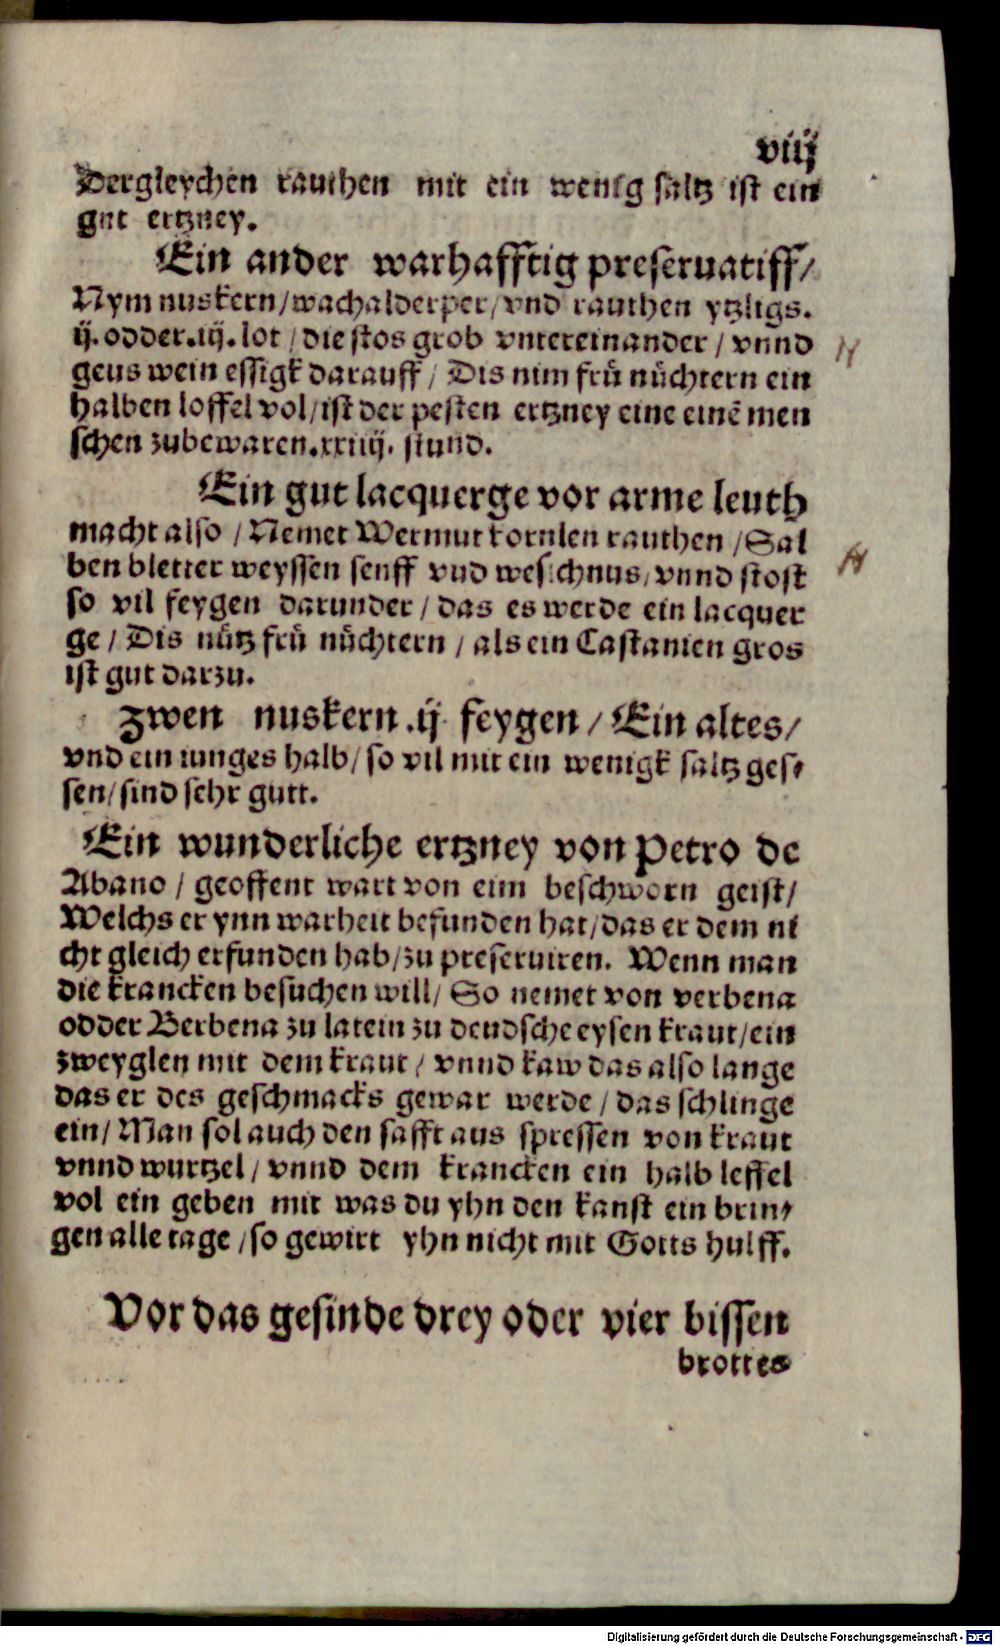 viij
Dergleychen rauthen mit ein wenig saltz ist ein
gut ertzney.
Ein ander warhafftig preseruatiff/
Nym nuskern/wachalderper/vnd rauthen ytzligs.
ij. odder .iij. lot / die stos grob vntereinander / vnnd
geus wein essigk darauff / Dis nim frü nüchtern ein
halben loffel vol/ist der pesten ertzney eine einē men
schen zubewaren.xxiiij. stund.
Ein gut lacquerge vor arme leuth
macht also / Nemet Wermut kornlen rauthen /Sal
ben bletter weyssen senff vnd welschnus/vnnd stost
so vil feygen darunder / das es werde ein lacquer
ge / Dis nütz frü nüchtern / als ein Castanien gros
ist gut darzu.
zwen nuskern .ij feygen / Ein altes/
vnd ein iunges halb/ so vil mit ein wenigk saltz ges⸗
sen/sind sehr gutt.
Ein wunderliche ertzney von Petro de
Abano / geoffent wart von eim beschworn geist/
Welchs er ynn warheit befunden hat/das er dem ni
cht gleich erfunden hab/zu preseruiren. Wenn man
die krancken besuchen will/ So nemet von verbena
odder Berbena zu latein zu deudsche eysen kraut/ein
zweyglen mit dem kraut / vnnd kaw das also lange
das er des geschmacks gewar werde / das schlinge
ein/ Man sol auch den safft aus spressen von kraut
vnnd wurtzel / vnnd dem krancken ein halb leffel
vol ein geben mit was du yhn den kanst ein brin⸗
gen alle tage /so gewirt yhn nicht mit Gotts hulff.
Vor das gesinde drey oder vier bissen
brottes
Digitalisierung gefördert durch die Deutsche Forschungsgemeinschaft - DFG